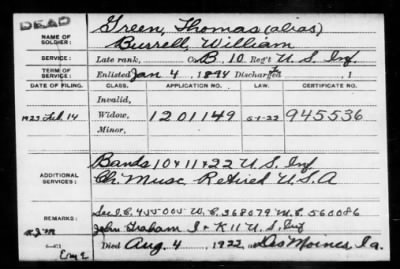 DEAD
NAME OF SOLDIER: Green, Thomas (alias)
Burrell, William
SERVICE: Late rank, Co B, 10 Reg't U.S. Inf
TERM OF SERVICE: Enlisted Jan 4, 1894 Discharged , 1
DATE OF FILING. CLASS. APPLICATION NO. LAW. CERTIFICATE NO.
Invalid,
1923 Feb 14 Widow, 1201149 5-1-22 945536
Minor,
ADDITIONAL SERVICES: Bands 10 & 11 & 22 U.S. Inf
Ch. Musc Retired U.S.A
REMARKS: See I.C. 455005 W.C. 368079 M.C. 560086
John Graham I & K 11 U.S. Inf
Died Aug. 4, 1922, Des Moines, Ia.